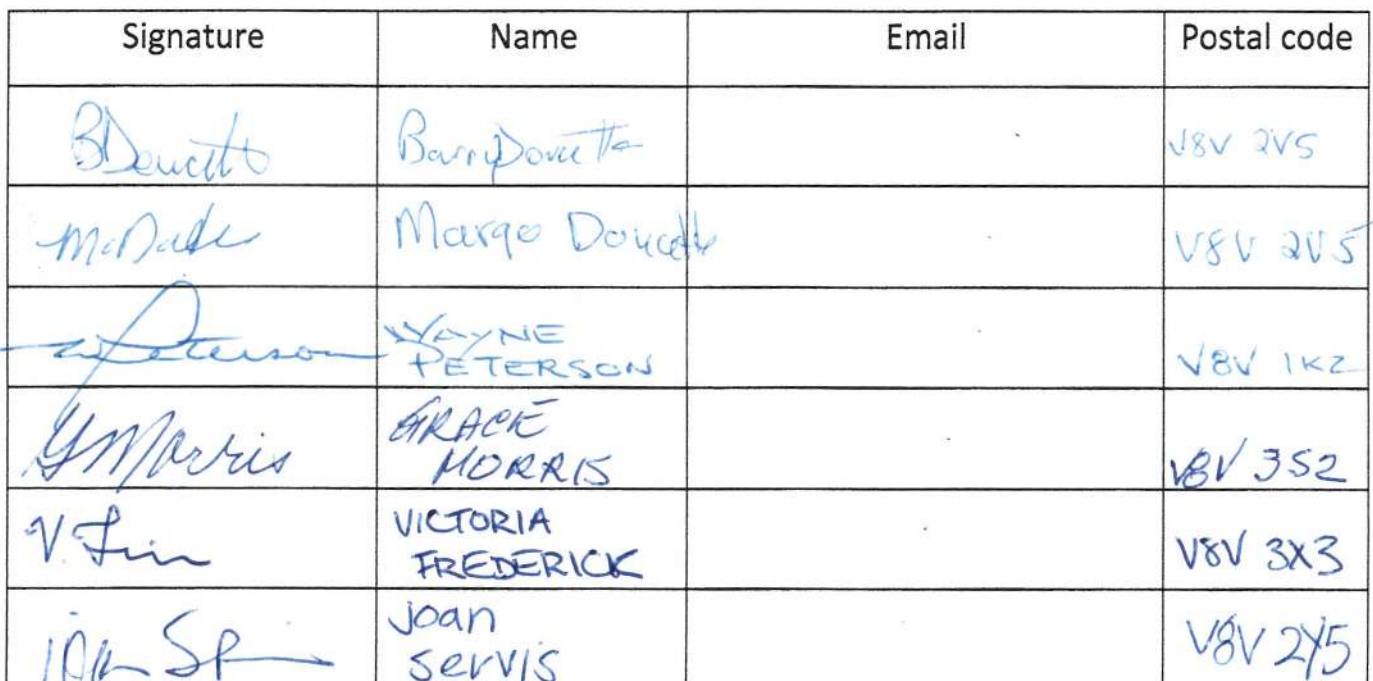 Signature Name Email Postal code
BDoucette Barry Doucette V8V 2V5
Margo Doucette V8V 2V5
WPeterson WAYNE
PETERSON V8V 1K2
GMorris GRACE
MORRIS V8V 3S2
V. VICTORIA
FREDERICK V8V 3X3
Joan
Servis V8V 2Y5